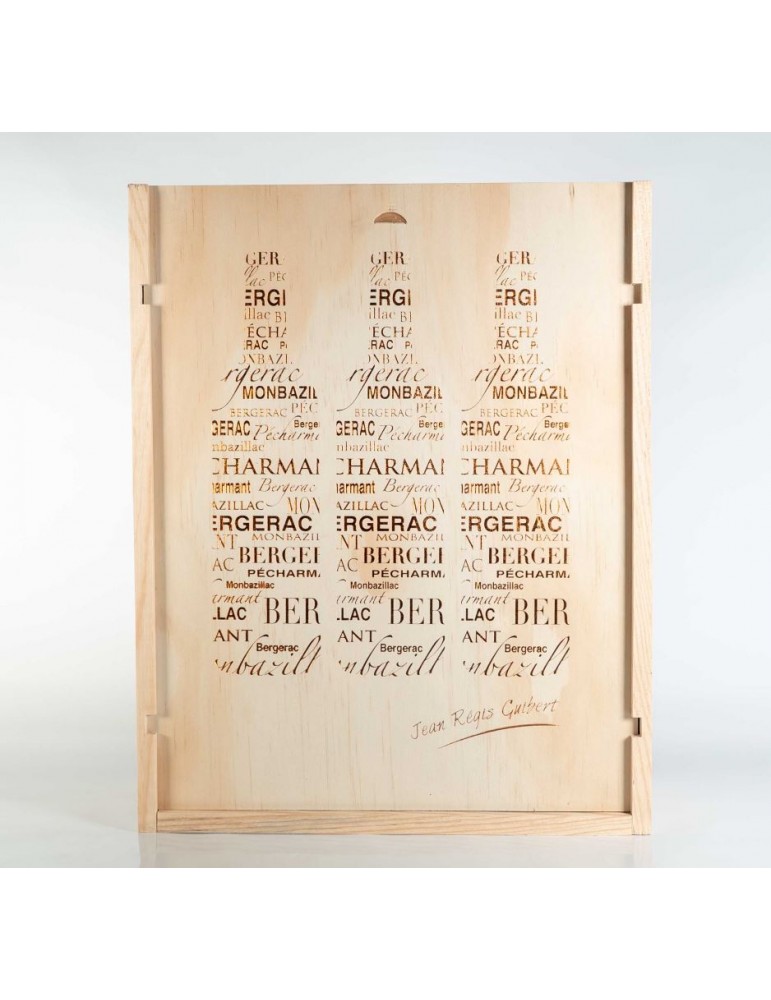 GER
llac PÉC
ERGI
illac BI
ÉCHA
RAC PÉ
ONBAZIL
rgerac
MONBAZIL
BERGERAC PÉC
GERAC Pécharm Bergera
nbazillac
CHARMAN
armant Bergerac
AZILLAC MON
ERGERAC
NT MONBAZIL
AC BERGER
PÉCHARMA
Monbazillac
rmant
LLAC BER
ANT Bergerac
onbazill
GER
llac PÉC
ERGI
illac BI
ÉCHA
RAC PÉ
ONBAZIL
rgerac
MONBAZIL
BERGERAC PÉC
GERAC Pécharm Bergera
nbazillac
CHARMAN
armant Bergerac
AZILLAC MON
ERGERAC
NT MONBAZIL
AC BERGER
PÉCHARMA
Monbazillac
rmant
LLAC BER
ANT Bergerac
onbazill
GER
llac PÉC
ERGI
illac BI
ÉCHA
RAC PÉ
ONBAZIL
rgerac
MONBAZIL
BERGERAC PÉC
GERAC Pécharm Bergera
nbazillac
CHARMAN
armant Bergerac
AZILLAC MON
ERGERAC
NT MONBAZIL
AC BERGER
PÉCHARMA
Monbazillac
rmant
LLAC BER
ANT Bergerac
onbazill
Jean Régis Guibert